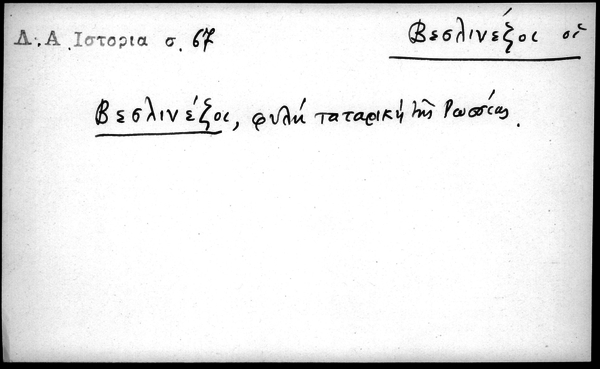 Δ. Α Ιστορια σ. 67
Βεσλινέζοι οἱ
Βεσλινέζοι, φυλή ταταρική τῆς Ρωσσίας.